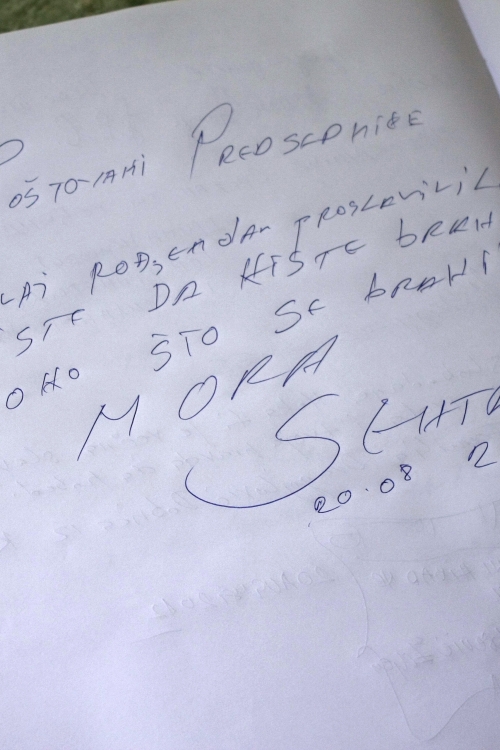 POŠTOVANI PREDSEDNIČE
VAJ ROĐENDAN PROSLAVILI
ISTE DA NISTE BRAN
ONO ŠTO SE BRANI
MORA
20.08 2